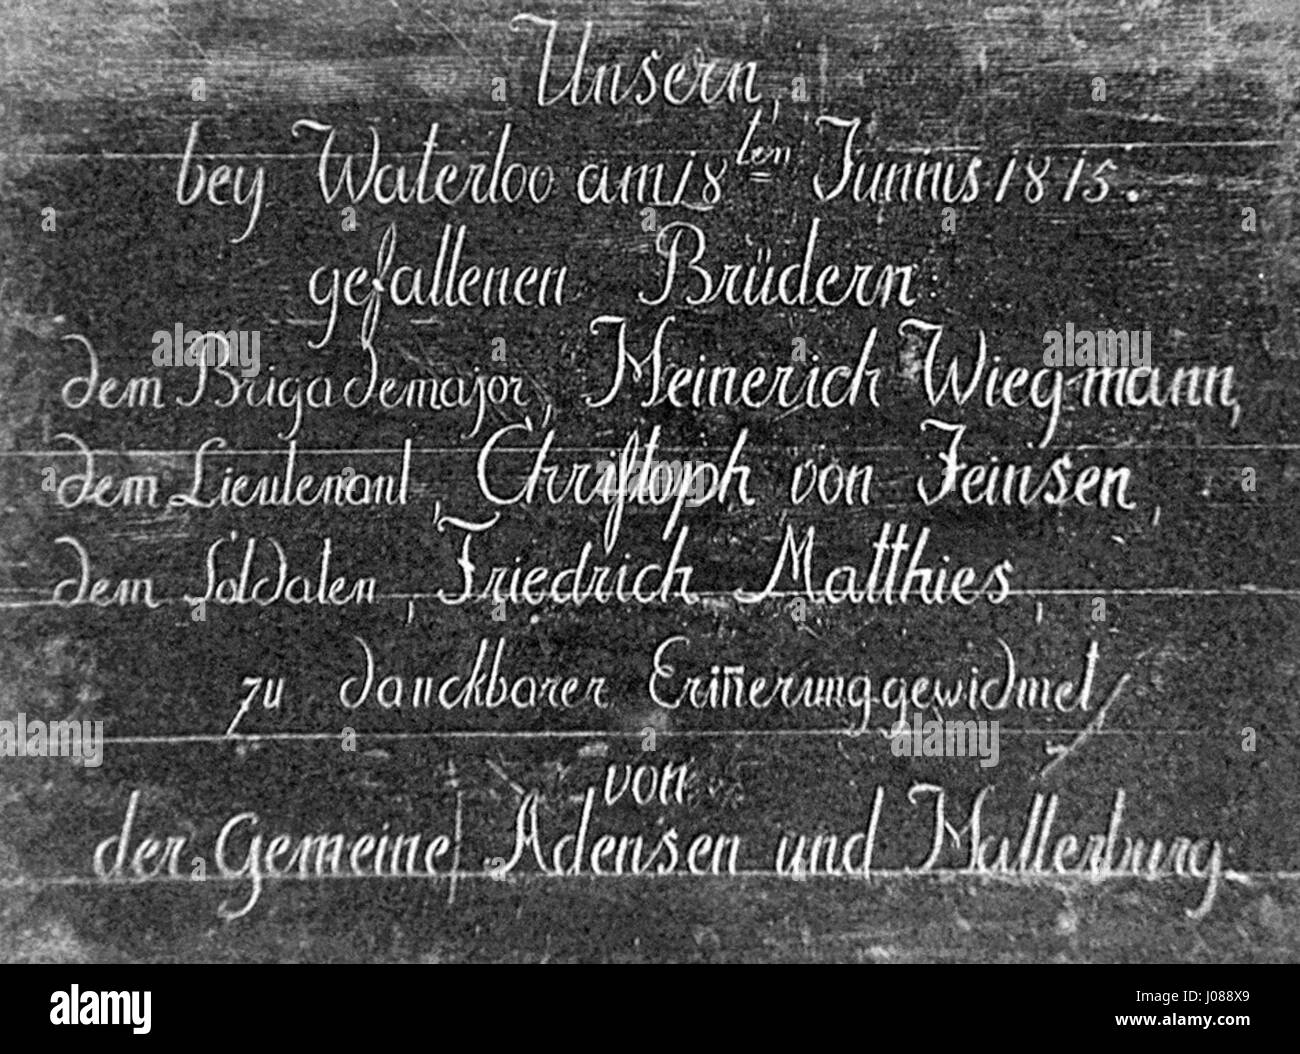 Unsern,
bey Waterloo am 18ten Junius 1815.
gefallenen Brüdern:
dem Brigademajor, Heinerich Wiegmann,
dem Lieutenant, Chriſtoph von Jeinsen,
dem Soldaten, Friedrich Matthies,
zu danckbarer Erin̄erung gewidmet
von
der Gemeine Adensen und Hallerburg.
alamy
Image ID: J088X9
www.alamy.com